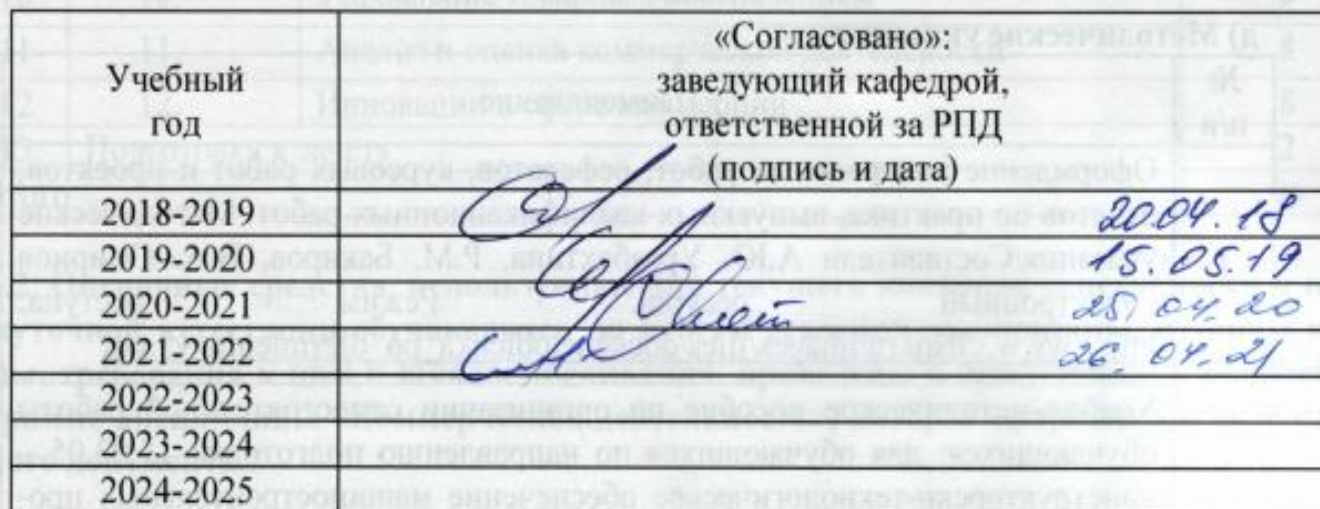 Учебный
год
«Согласовано»:
заведующий кафедрой,
ответственной за РПД
(подпись и дата)
2018-2019 20.04.18
2019-2020 15.05.19
2020-2021 25.04.20
2021-2022 26.04.21
2022-2023
2023-2024
2024-2025